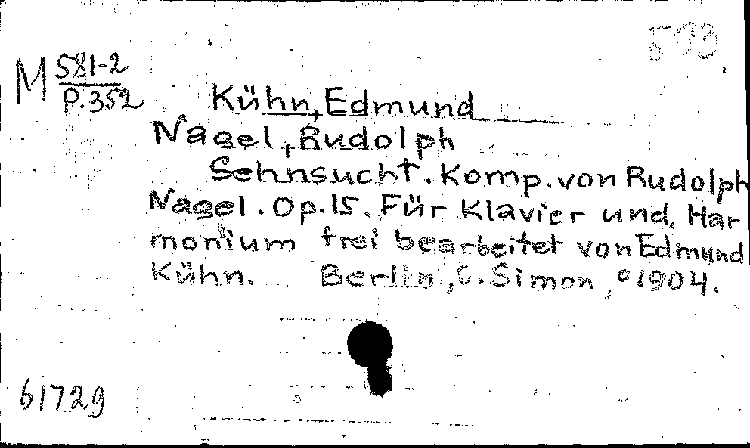 593
M 581-2
P.352
Kühn, Edmund
Nagel, Rudolph
Sehnsucht. Komp. von Rudolph
Nagel. Op. 15. Für Klavier und Har
monium frei bearbeitet von Edmund
Kühn. Berlin, C. Simon, ©1904.
61729